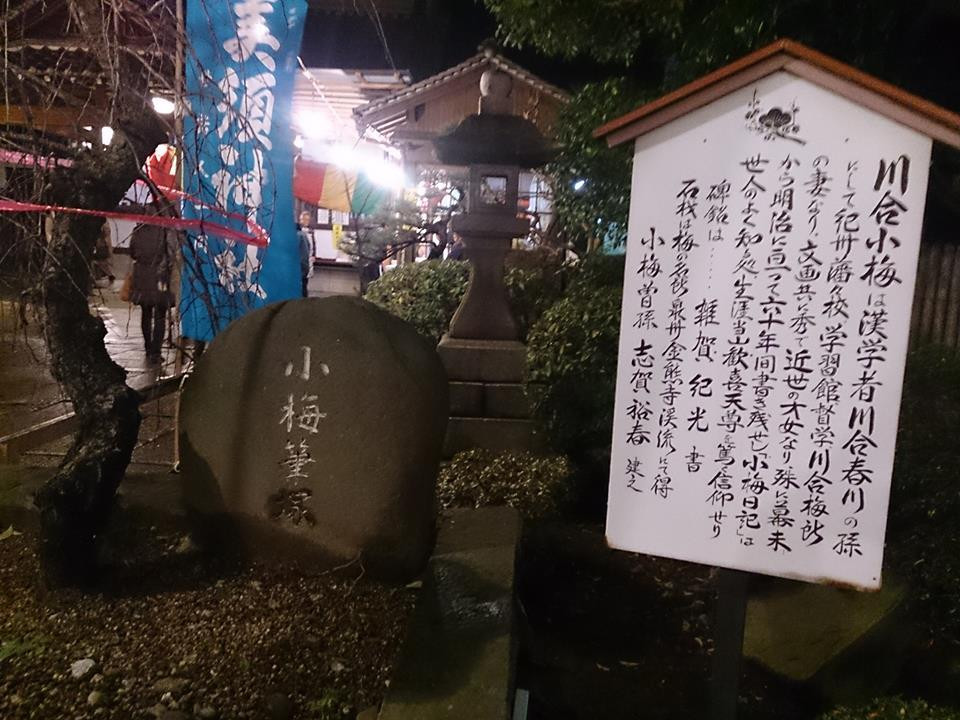 川合小梅は漢学者川合春川の孫
にして紀州藩名校学習館督学川合梅所
の妻なり、文画共に秀で近世の才女なり、殊に幕末
から明治に亘って六十年間書き残せし「小梅日記」は
世人のよく知る処、生涯当山歓喜天尊を篤く信仰せり
碑銘は……雑賀紀光書
石材は梅の名所泉州金熊寺渓流にて得
小梅曽孫 志賀裕春 建之
小梅筆塚
奉須